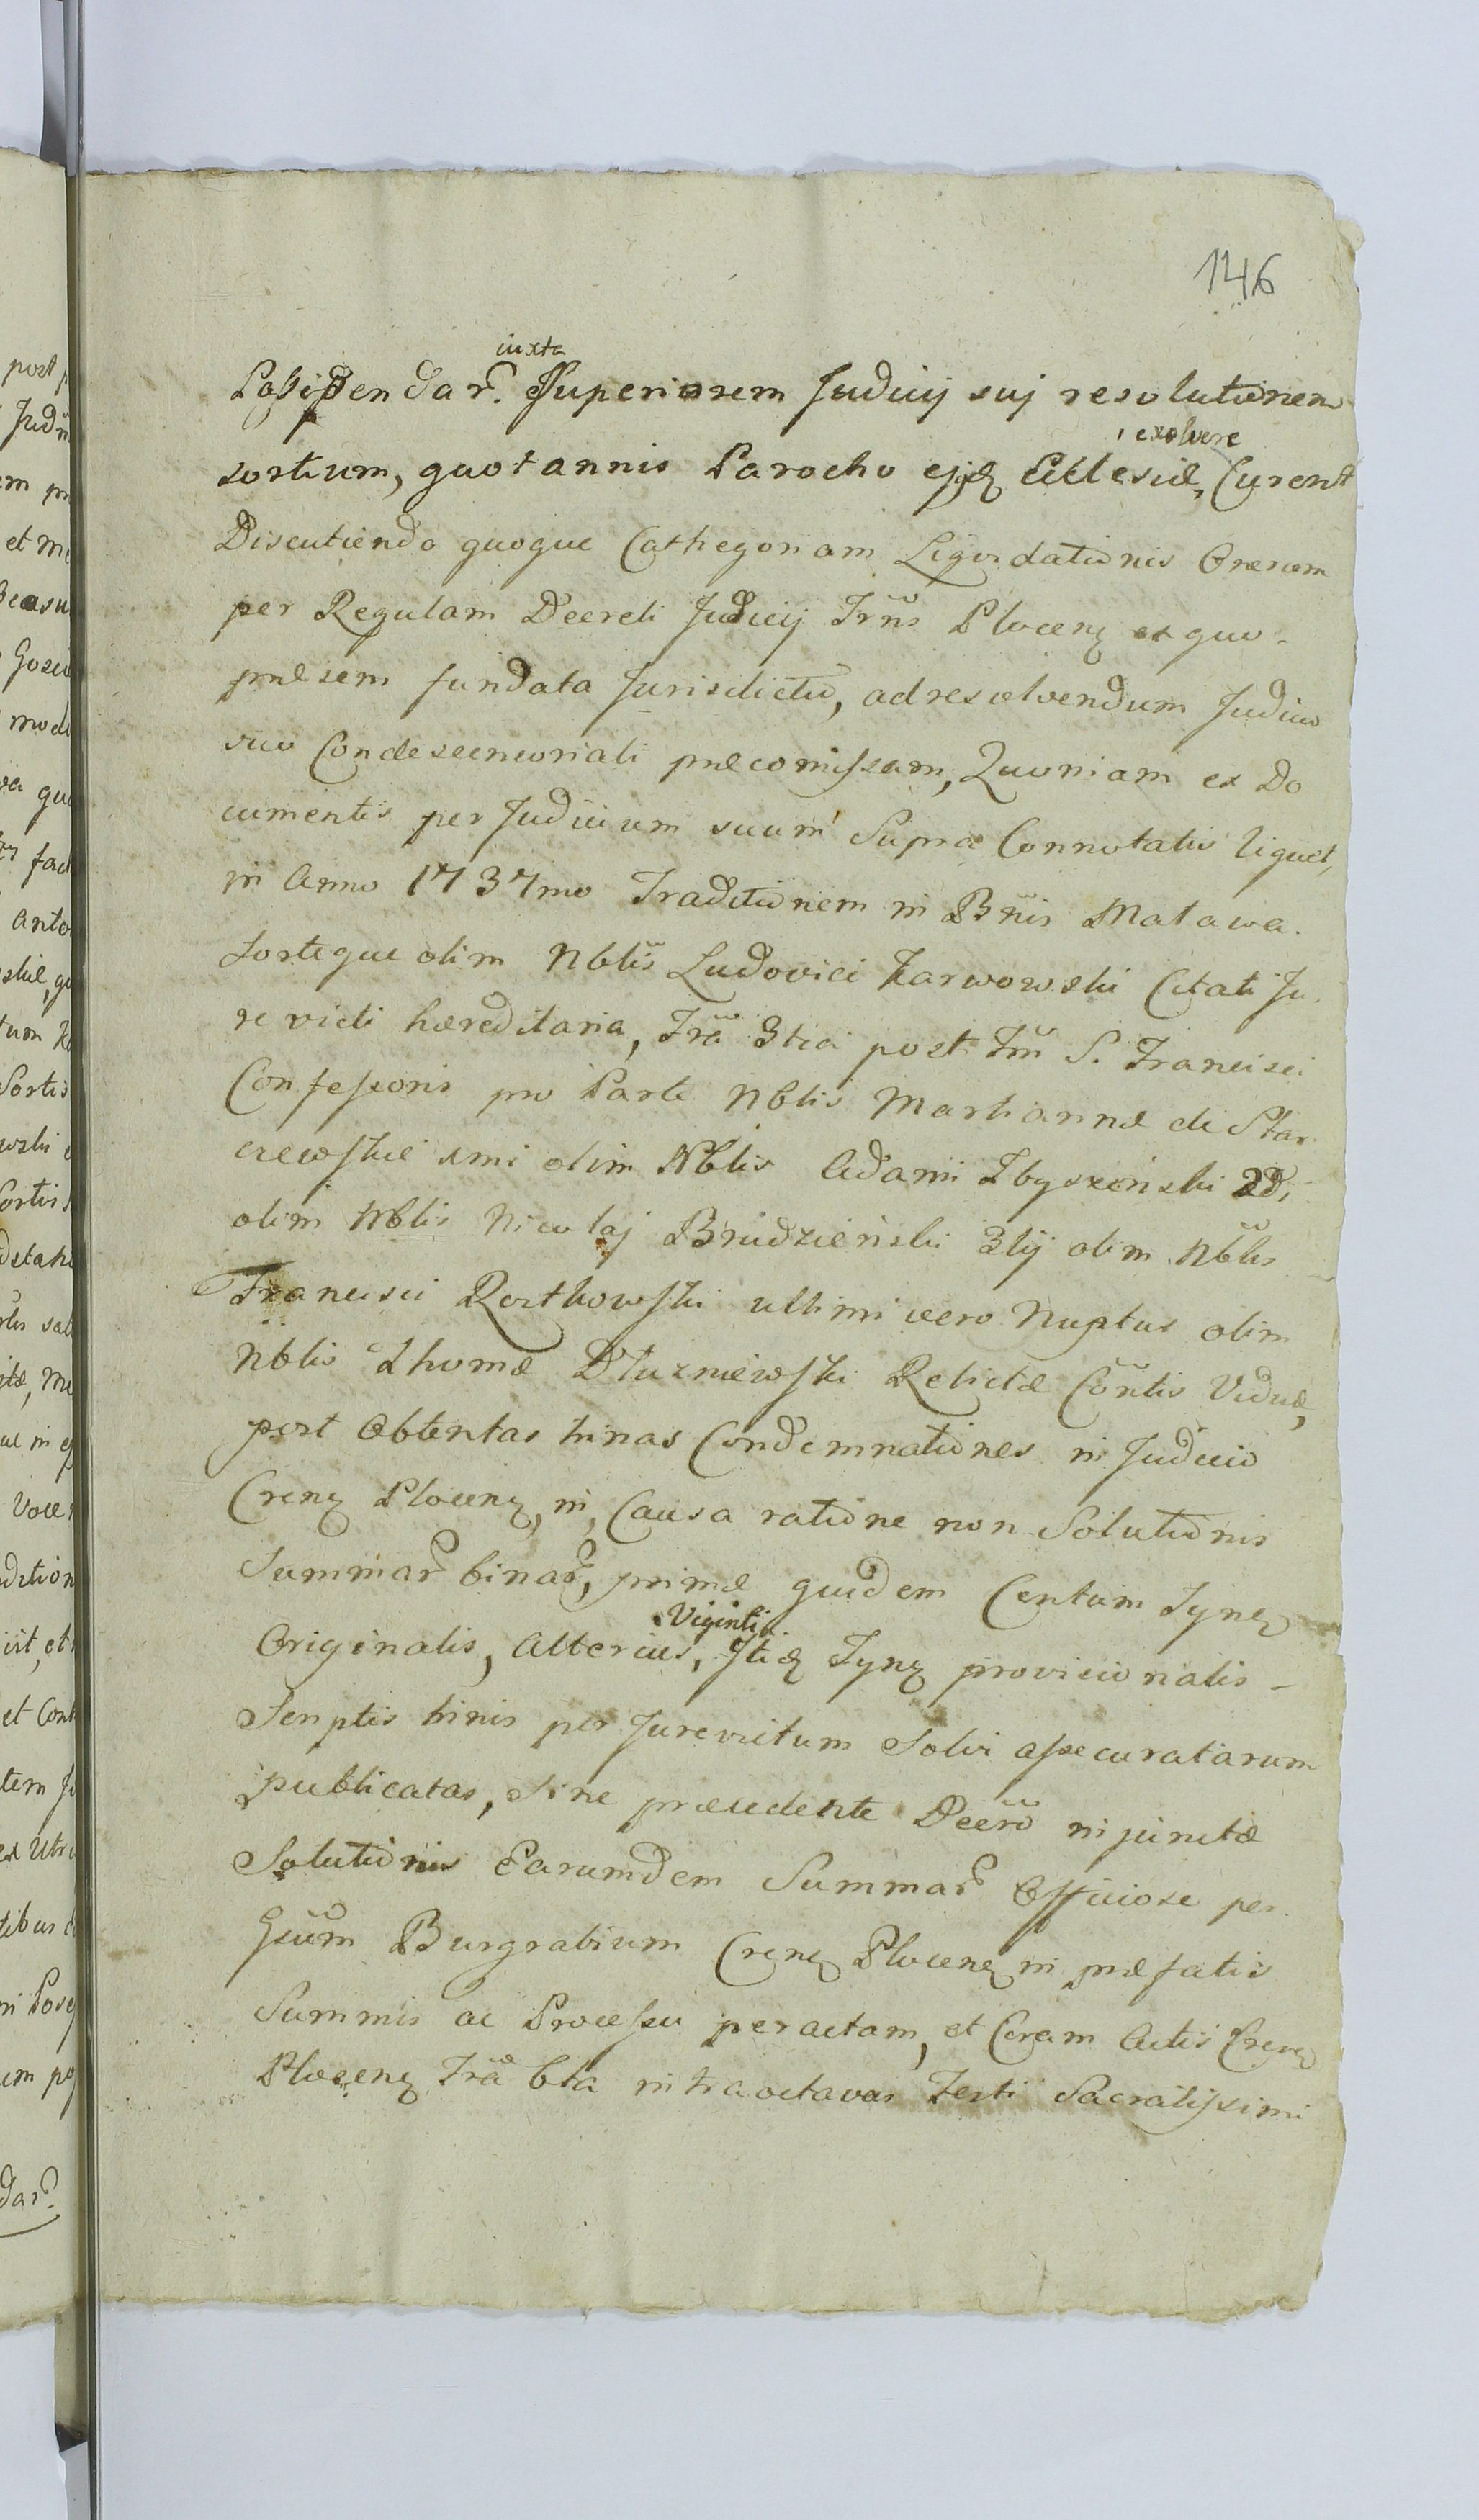 146
iuxta
Possidendar. Superiorem Judicij suj resolutionem
exolvere
sortium, quotannis Parocho ejq Ecclesiæ, Curent
Discutiendo quoque Cathegoriam Liquidationis Onerum
per Regulam Decreti Judicij Trnũs Plocenz ex quo-
præsens fundata Jurisdictio, ad resolvendum Judicio
suo Condescensoriali præcomissam, Quoniam ex Do
cumentis per Judicium suum Supra Connotatis liquet,
in Anno 1737mo Traditionem in Bnis Matawa.
sorteque olim Nblis Ludovici Karwowski Citati Ju-
re victi hæreditaria, Frã 3tia post Fm S. Francisci
Confessoris pro Parte Nblis Martiannæ de Star
czewskie 1mi olim Nblis Adami Zbyszenski 2di
olim Nblis Nicolaj Brudzieński 3tij olim Nblis
Francisci Rostkowski ultimi vero Nuptus olim
Nblis Thomæ Dłuzniewski Relictæ Contis Viduæ,
post Obtentas trinas Condemnationes in Judicio
Crenz Plocenz, in Causa ratione non Solutionis
Summar binar, primæ quidem Centum Tynz
Viginti
Originalis, Alterius, Itiq Tynz provisionalis -
Scriptis binis per Jurevictum Solvi assecuratarum
publicatas, Sine præcedente Decro injunctæ
Solutionis Earumdem Summar Officiose per
Gsum Burgrabium Crenz Plocenz in præfatis
Summis ac Processu peractam, et Coram Actis Crenz
Plocenz Frã 6ta intra octavas Festi Sacratissimi